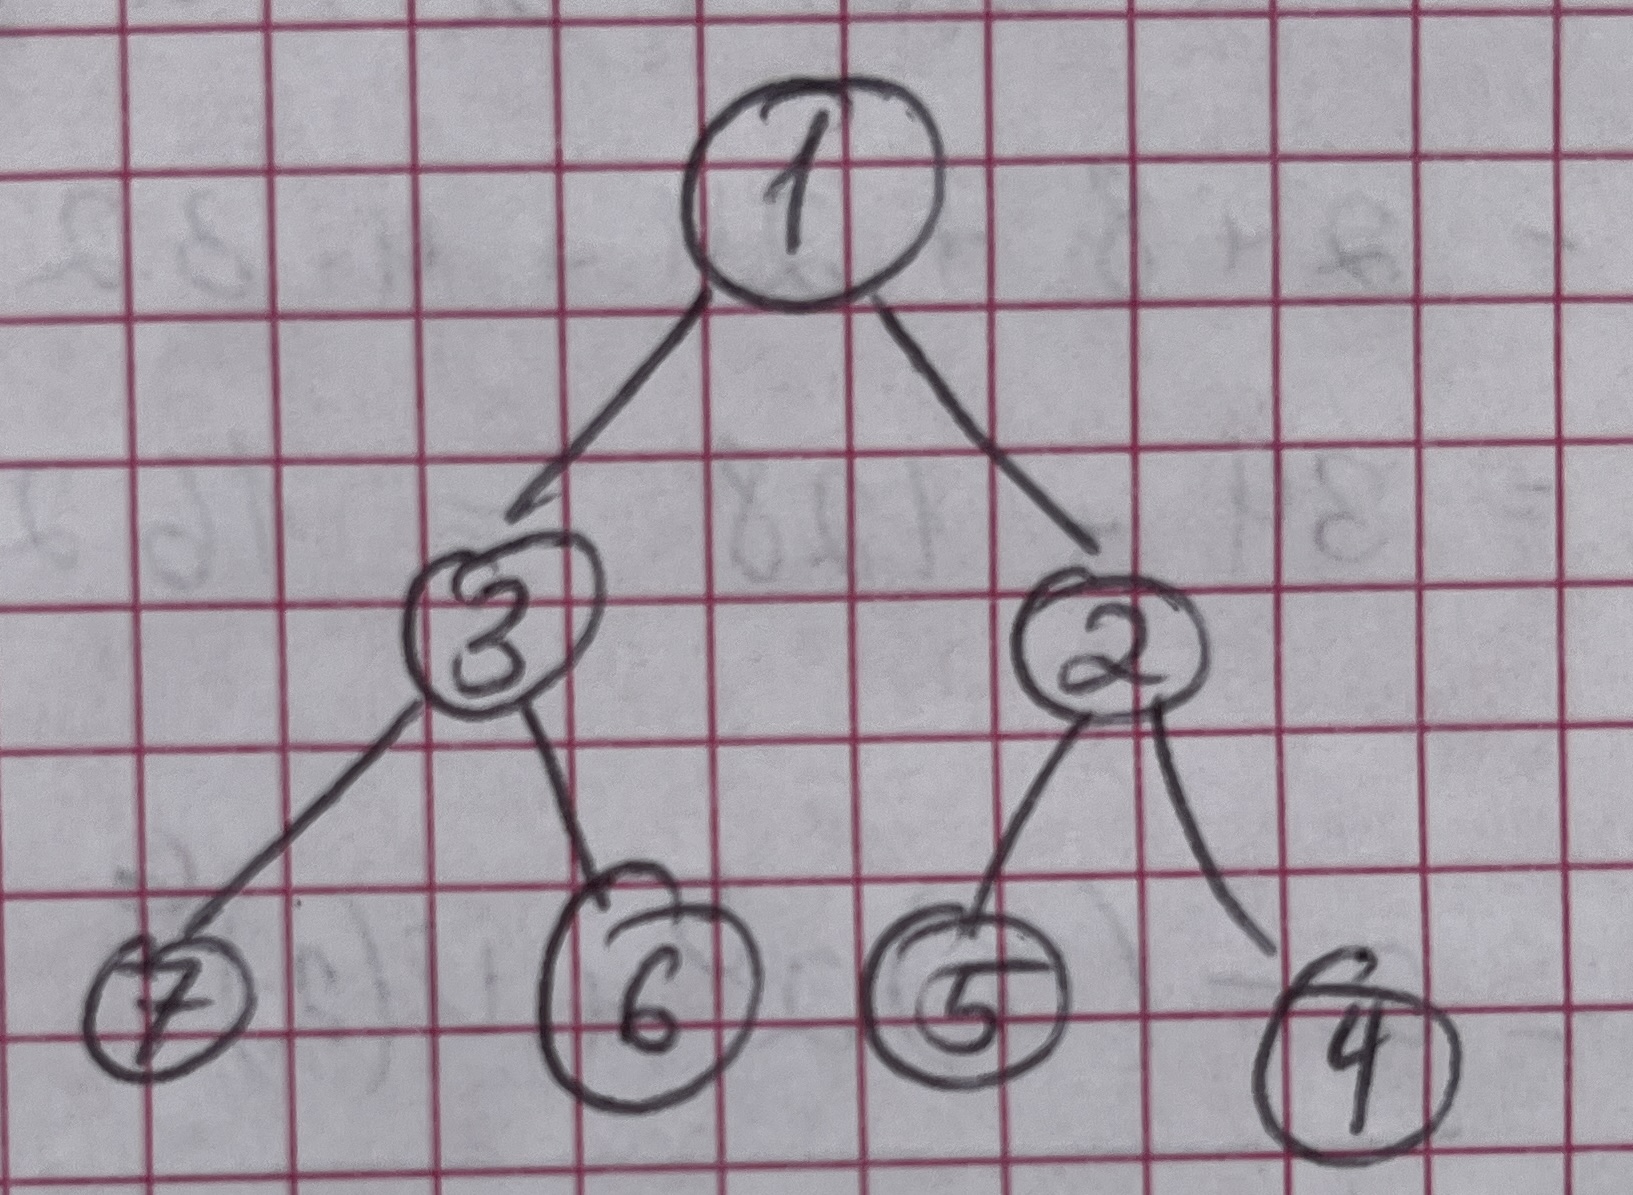 1
3 2
7 6 5 4